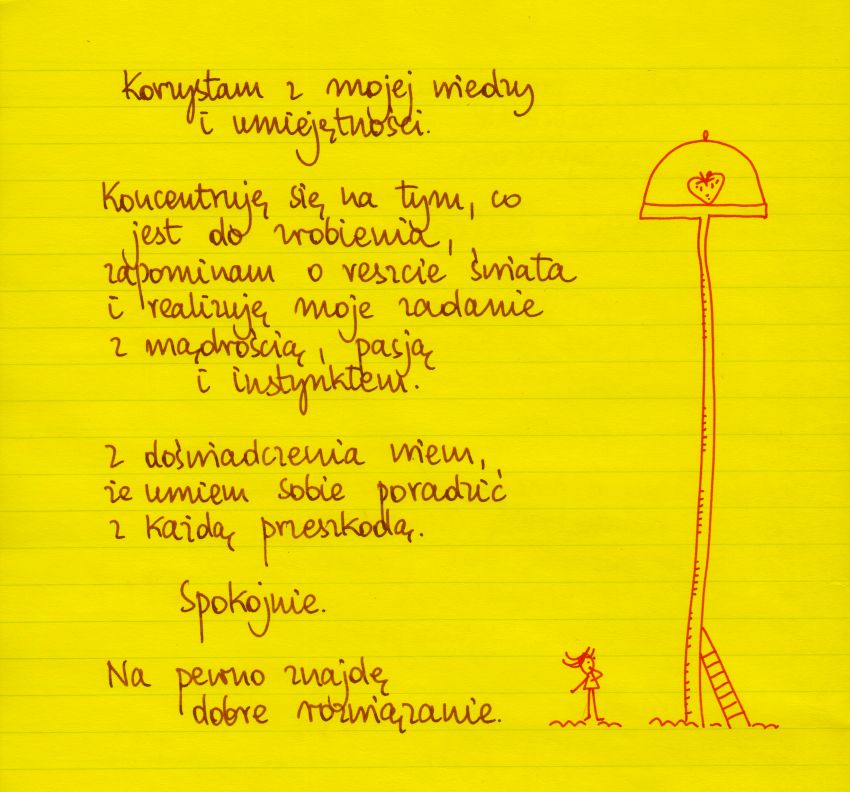 Korzystam z mojej wiedzy
i umiejętności.
Koncentruję się na tym, co
jest do zrobienia,
zapominam o reszcie świata
i realizuję moje zadanie
z mądrością, pasją
i instynktem.
Z doświadczenia wiem,
że umiem sobie poradzić
z każdą przeszkodą.
Spokojnie.
Na pewno znajdę
dobre rozwiązanie.